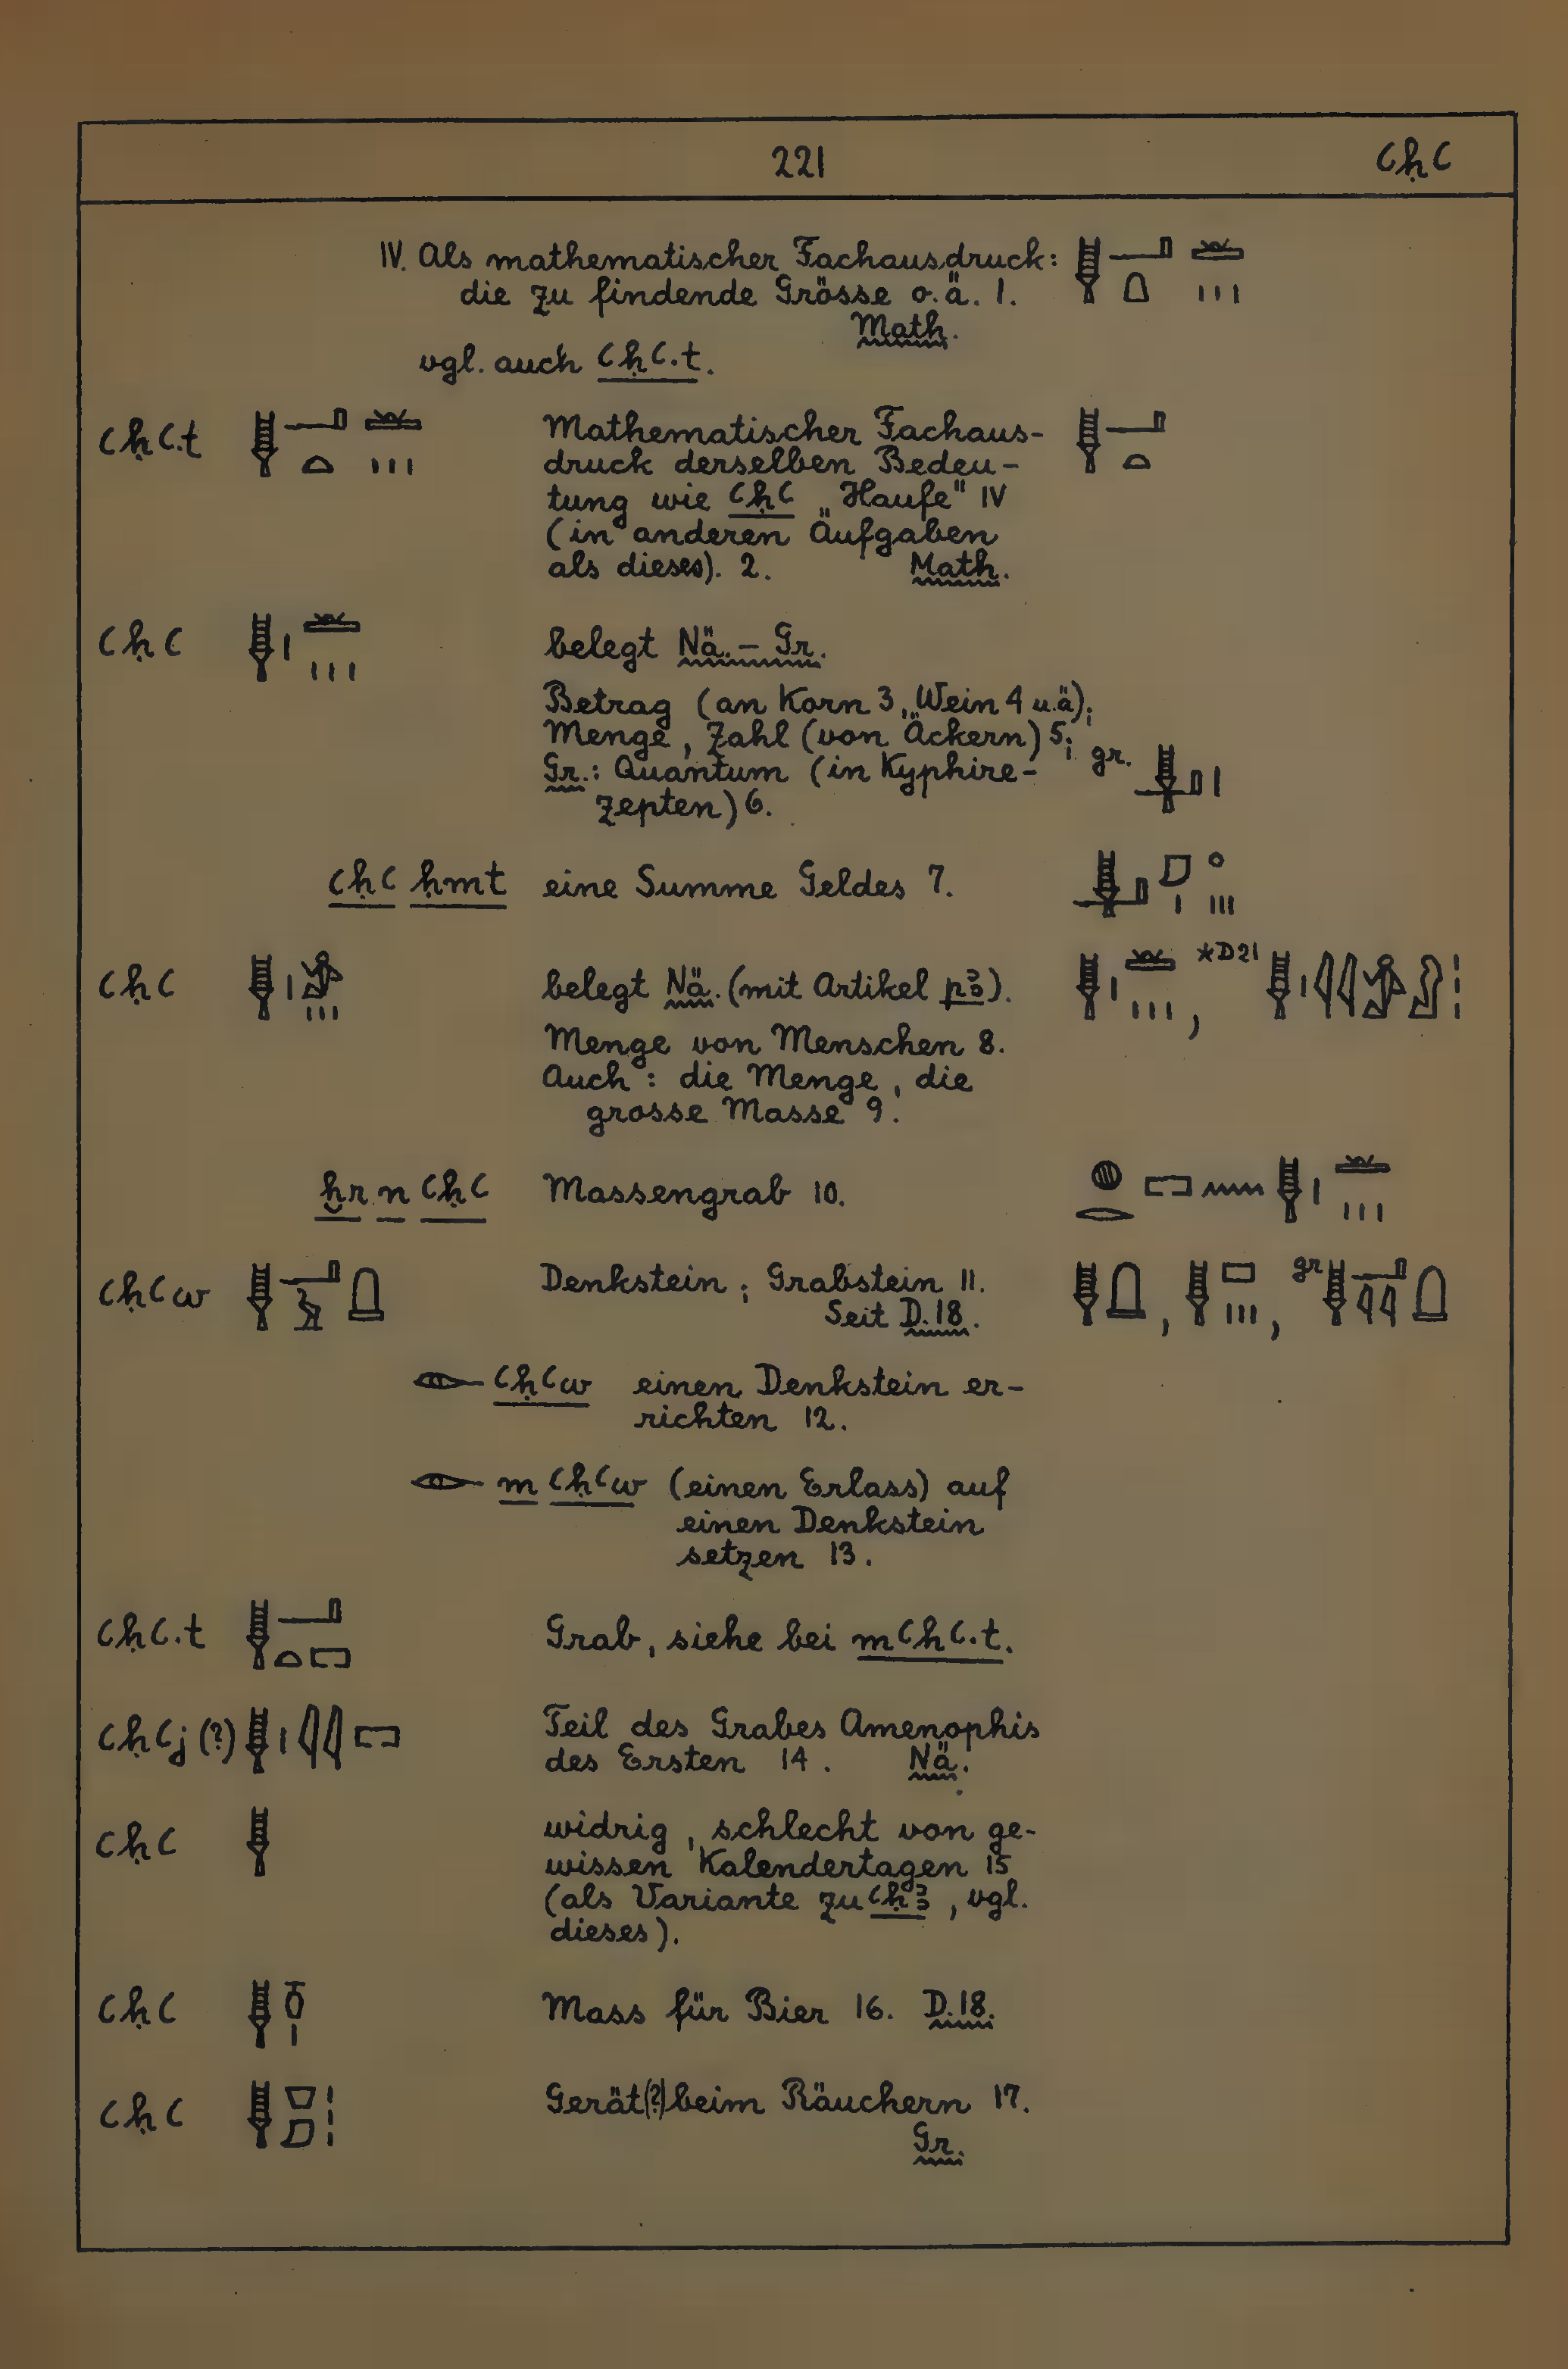 221 ꜥḥꜥ
IV. Als mathematischer Fachausdruck:
die zu findende Grösse o.ä. 1.
Math.
vgl. auch ꜥḥꜥ.t.
ꜥḥꜥ.t Mathematischer Fachaus-
druck derselben Bedeu-
tung wie ꜥḥꜥ „Haufe" IV
(in anderen Aufgaben
als dieses). 2. Math.
ꜥḥꜥ belegt Nä. – Gr.
Betrag (an Korn 3, Wein 4 u.ä);
Menge, Zahl (von Äckern) 5;
Gr.: Quantum (in Kyphire- gr.
zepten) 6.
ꜥḥꜥ ḥmt eine Summe Geldes 7.
ꜥḥꜥ belegt Nä. (mit Artikel pꜣ). *D21
Menge von Menschen 8.
Auch: die Menge, die
grosse Masse 9.
ẖr n ꜥḥꜥ Massengrab 10.
ꜥḥꜥw Denkstein; Grabstein 11. gr
Seit D.18.
𓁹 ꜥḥꜥw einen Denkstein er-
richten 12.
𓁹 m ꜥḥꜥw (einen Erlass) auf
einen Denkstein
setzen 13.
ꜥḥꜥ.t Grab, siehe bei mꜥḥꜥ.t.
ꜥḥꜥj (?) Teil des Grabes Amenophis
des Ersten 14. Nä.
ꜥḥꜥ widrig, schlecht von ge-
wissen Kalendertagen 15
(als Variante zu ꜥḥꜣ, vgl.
dieses).
ꜥḥꜥ Mass für Bier 16. D.18.
ꜥḥꜥ Gerät (?) beim Räuchern 17.
Gr.